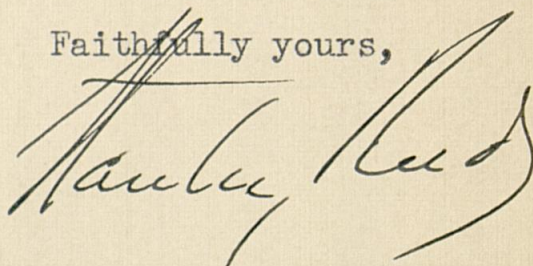 Faithfully yours,
Stanley Reed